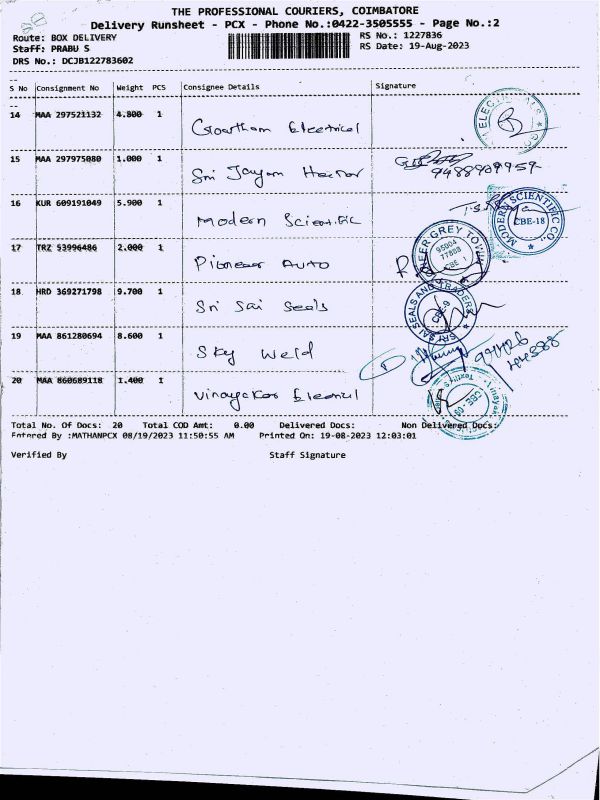 THE PROFESSIONAL COURIERS, COIMBATORE
Delivery Runsheet - PCX - Phone No.:0422-3505555 - Page No.:2
Route: BOX DELIVERY RS No.: 1227836
Staff: PRABU S RS Date: 19-Aug-2023
DRS No.: DCJB122783602
S No Consignment No Weight PCS Consignee Details Signature
14 MAA 297521132 4.800 1 Gowtham Electrical
15 MAA 297975080 1.000 1 Sri Jayam 9488909959
16 KUR 609191049 5.900 1 Modern Scientific
MODERN SCIENTIFIC CO., CBE-18
17 TRZ 53996486 2.000 1 Pioneer Auto
18 HRD 369271798 9.700 1 Sri Sai Seals
SRI SAI SEALS AND TRADERS CBE-9
19 MAA 861280694 8.600 1 Sky Weld
20 MAA 860689118 1.400 1 Vinayakar Electrical
Total No. Of Docs: 20 Total COD Amt: 0.00 Delivered Docs: Non Delivered Docs:
Entered By :MATHANPCX 08/19/2023 11:50:55 AM Printed On: 19-08-2023 12:03:01
Verified By Staff Signature